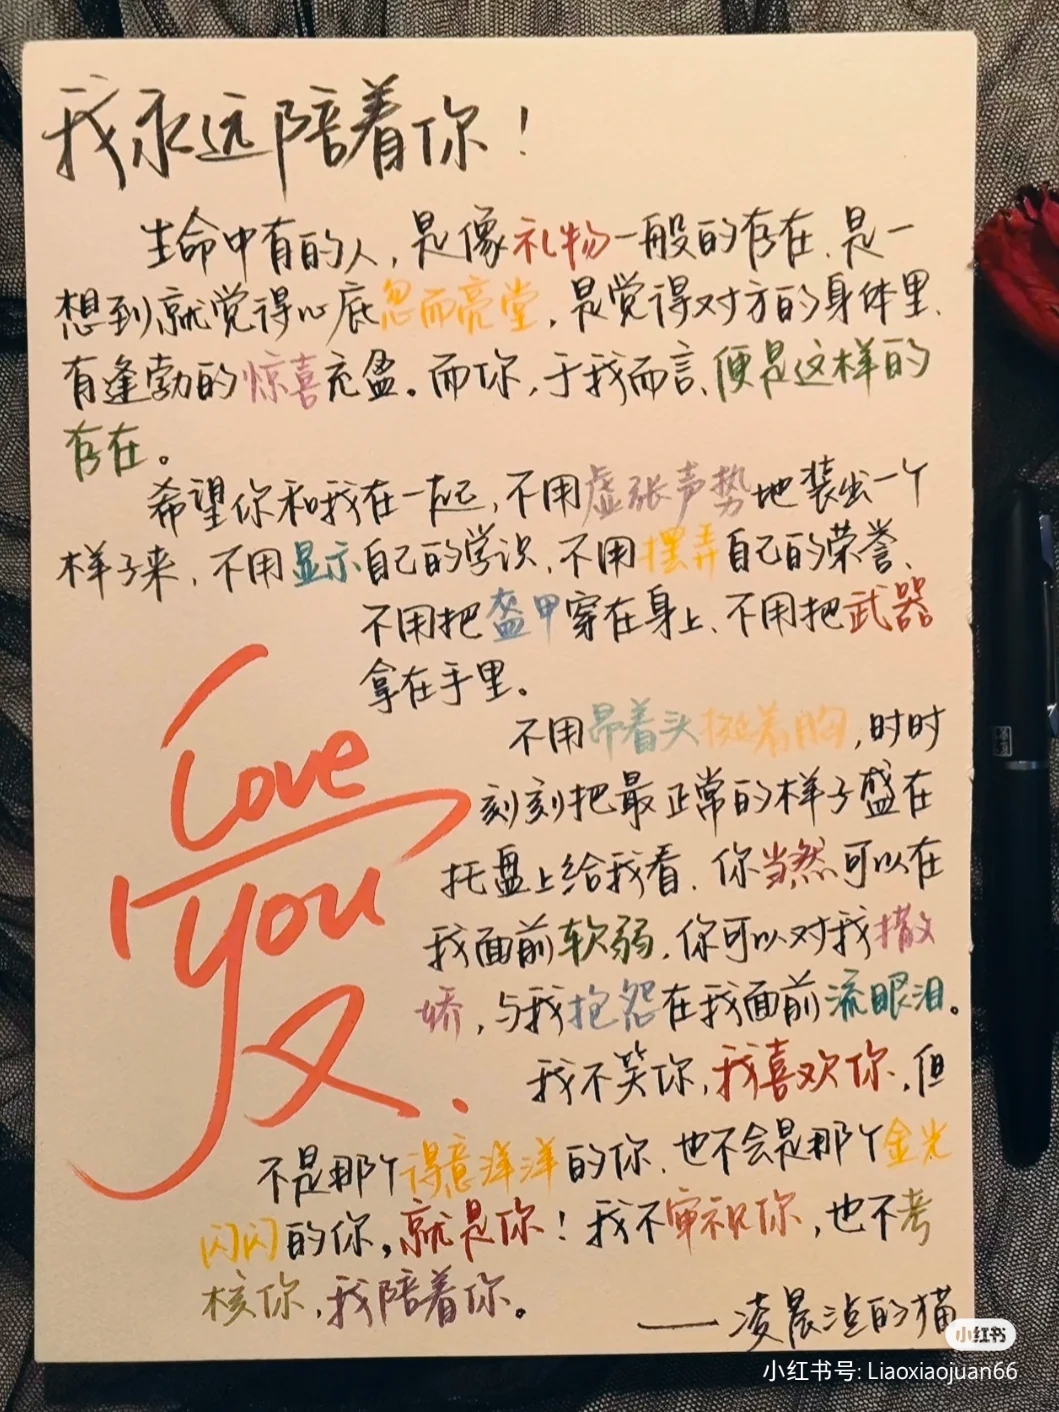 我永远陪着你！
生命中有的人，是像礼物一般的存在、是一
想到就觉得心底忽而亮堂，是觉得对方的身体里、
有蓬勃的惊喜充盈。而你，于我而言、便是这样的
存在。
希望你和我在一起，不用虚张声势地装出一个
样子来，不用显示自己的学识、不用摆弄自己的荣誉、
不用把盔甲穿在身上、不用把武器
拿在手里。
不用昂着头挺着胸，时时
刻刻把最正常的样子盛在
托盘上给我看、你当然可以在
我面前软弱、你可以对我撒
娇，与我抱怨在我面前流眼泪。
我不笑你，我喜欢你、但
不是那个得意洋洋的你、也不会是那个金光
闪闪的你，就是你！我不审视你，也不考
核你，我陪着你。
——凌晨点的猫
Love
You
小红书
小红书号: Liaoxiaojuan66